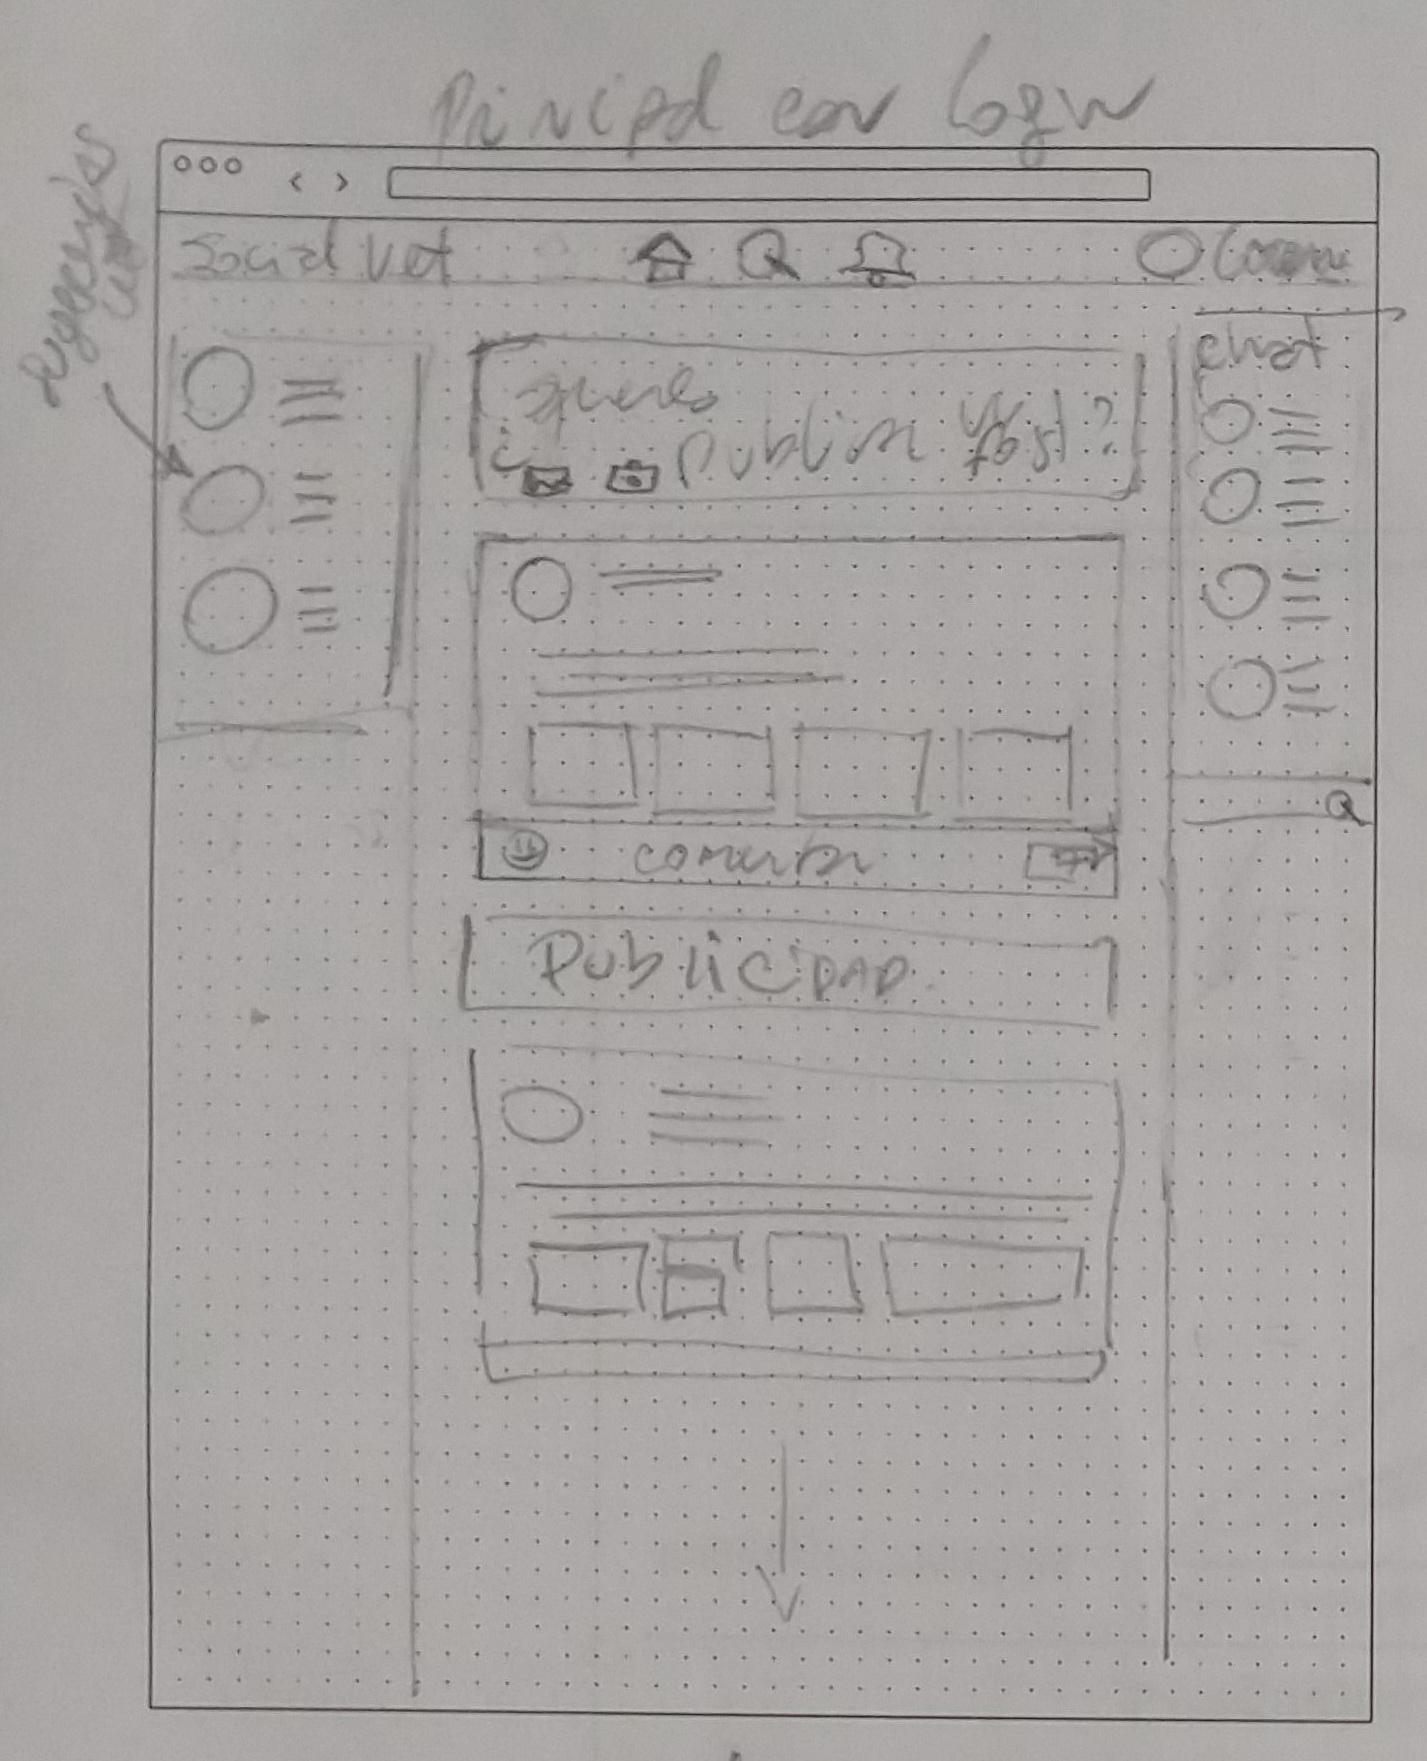 Principal con login
Social Vet
chat
¿quieres
publicar un post?
comentar
PubliCiDAD